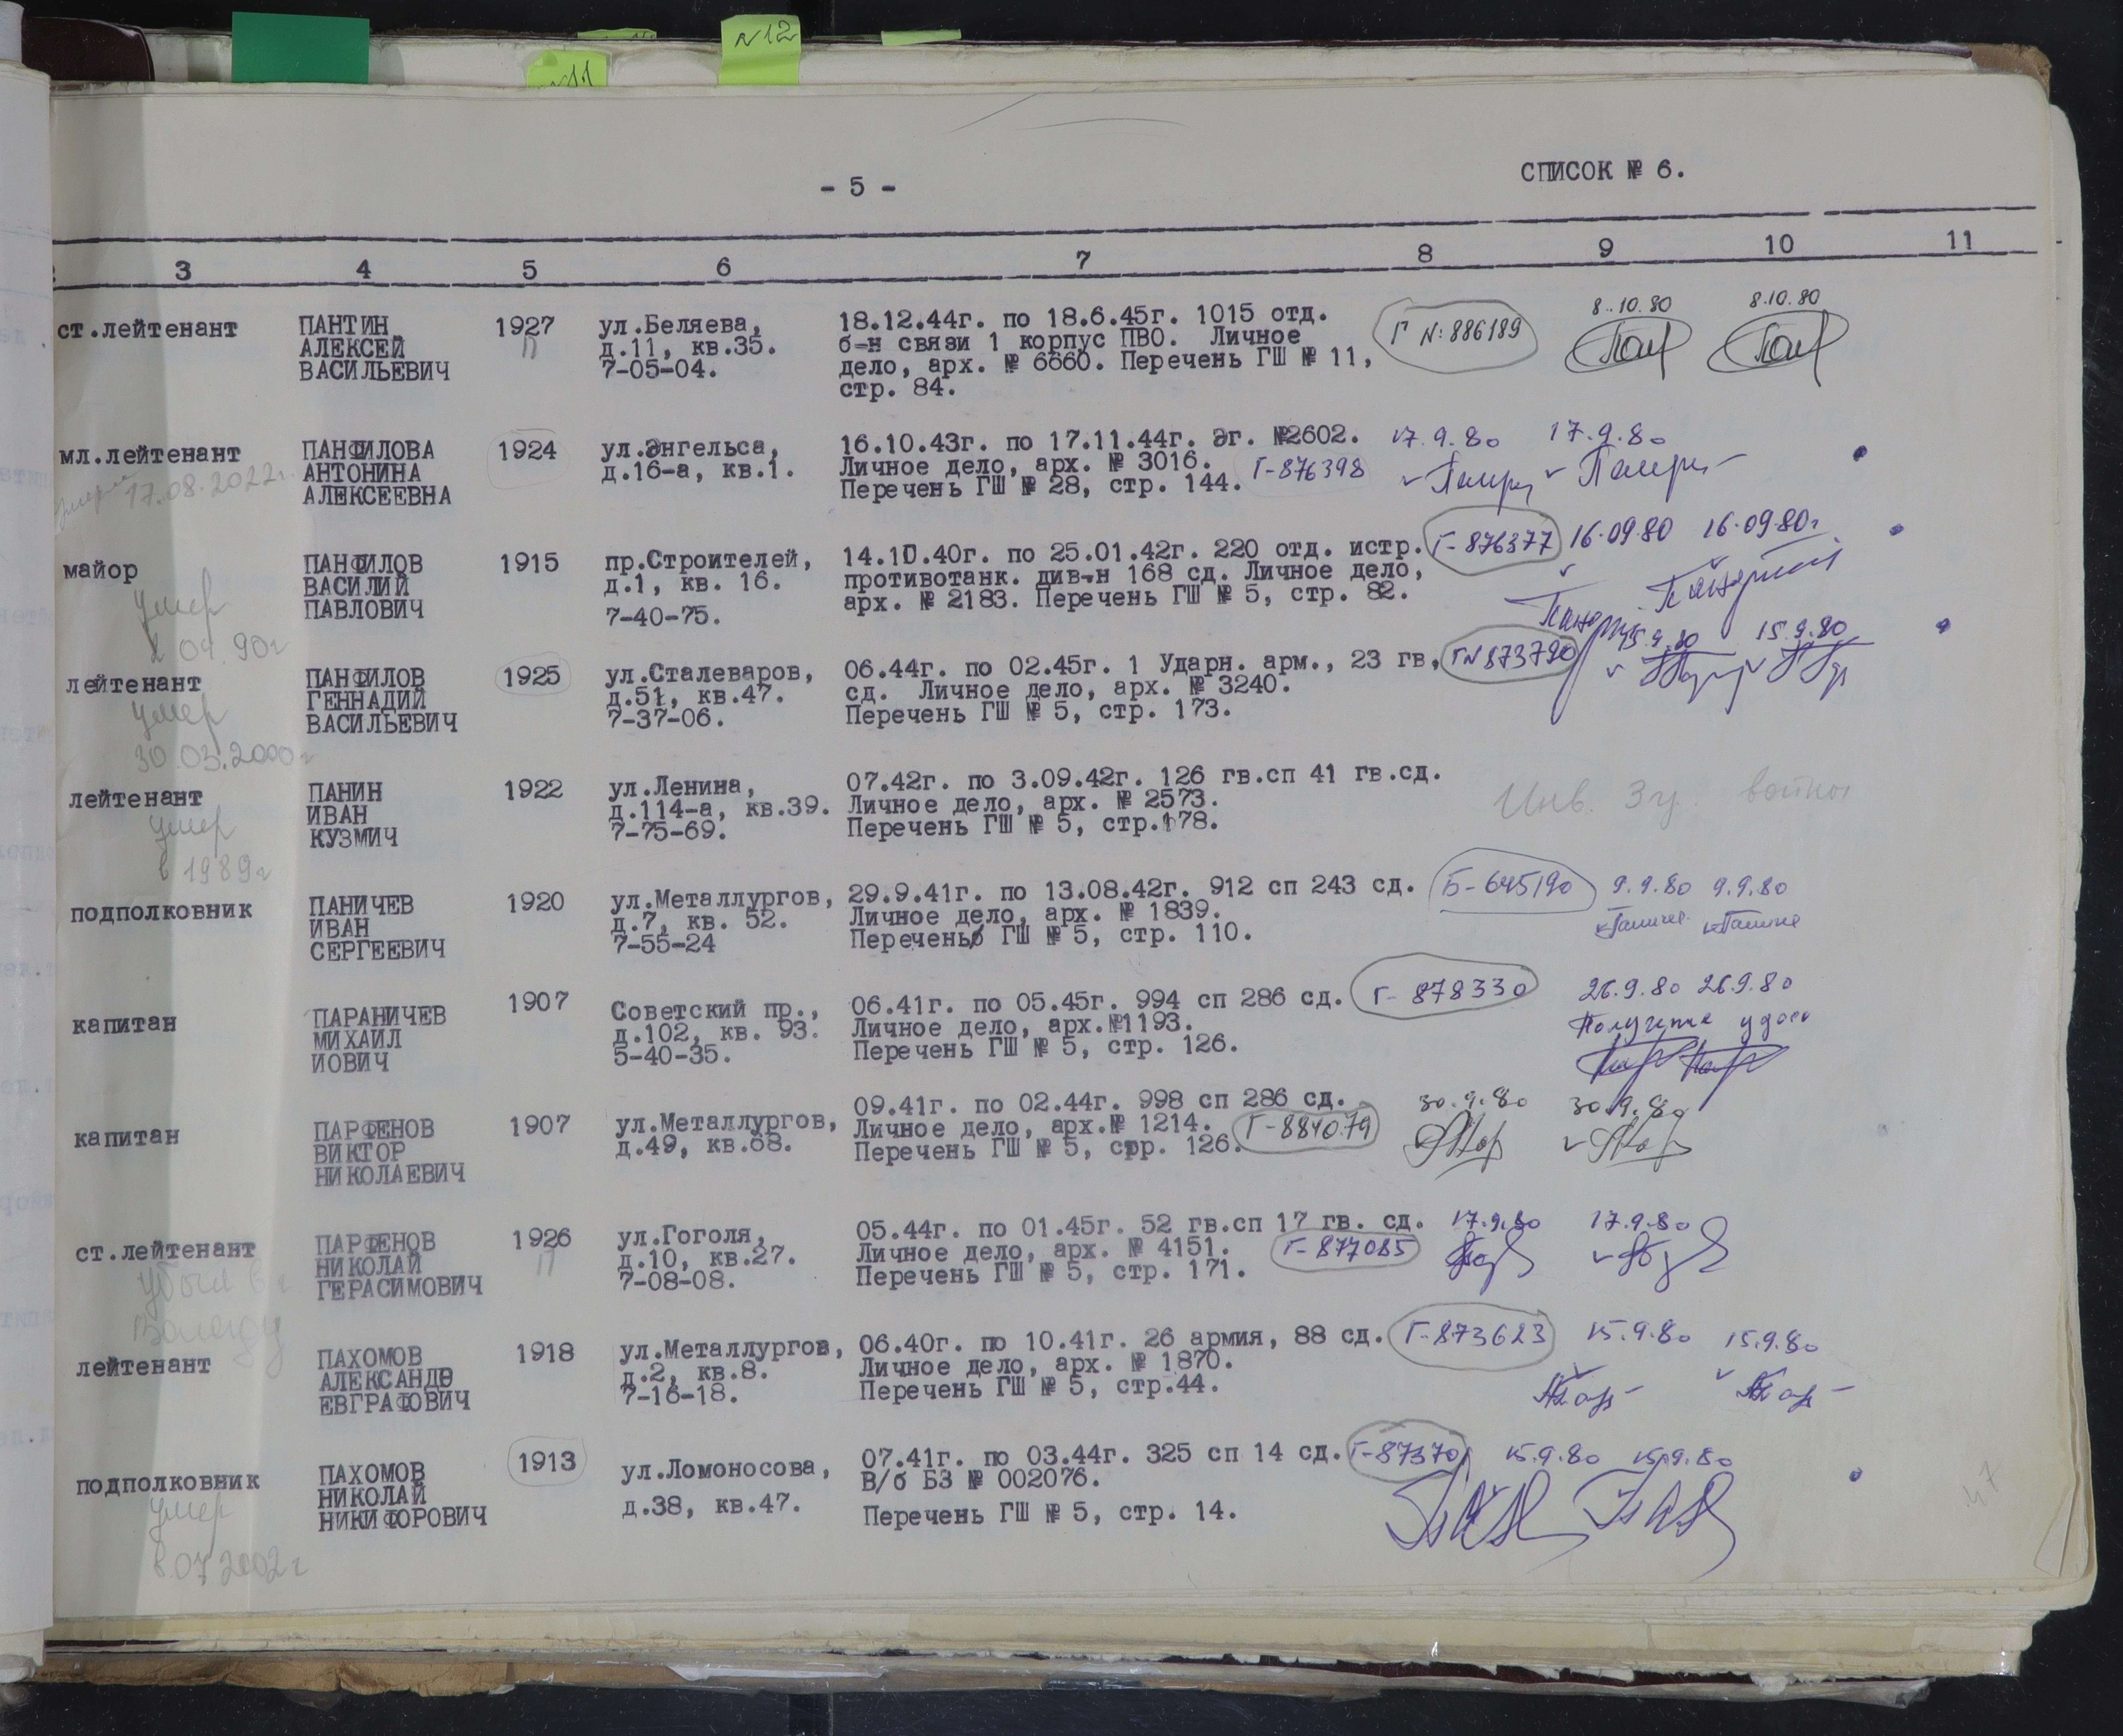 №12
- 5 -
СПИСОК № 6.
3 4 5 6 7 8 9 10 11
ст.лейтенант ПАНТИН 1927 ул.Беляева, 18.12.44г. по 18.6.45г. 1015 отд. Г №:886189 8.10.80 8.10.80
АЛЕКСЕЙ д.11, кв.35. б-н связи 1 корпус ПВО. Личное
ВАСИЛЬЕВИЧ 7-05-04. дело, арх. № 6660. Перечень ГШ № 11,
стр. 84.
мл.лейтенант ПАНФИЛОВА 1924 ул.Энгельса, 16.10.43г. по 17.11.44г. Эг. №2602. 17.9.80 17.9.80
умерла 17.08.2022г. АНТОНИНА д.16-а, кв.1. Личное дело, арх. № 3016. Г-876398
АЛЕКСЕЕВНА Перечень ГШ № 28, стр. 144.
майор ПАНФИЛОВ 1915 пр.Строителей, 14.10.40г. по 25.01.42г. 220 отд. истр. Г-876377 16.09.80 16.09.80г
умер ВАСИЛИЙ д.1, кв. 16. противотанк. див-н 168 сд. Личное дело,
2 04.90г ПАВЛОВИЧ 7-40-75. арх. № 2183. Перечень ГШ № 5, стр. 82.
лейтенант ПАНФИЛОВ 1925 ул.Сталеваров, 06.44г. по 02.45г. 1 Ударн. арм., 23 гв, Г№873790 15.9.80 15.9.80
умер ГЕННАДИЙ д.51, кв.47. сд. Личное дело, арх. № 3240.
30.03.2000г ВАСИЛЬЕВИЧ 7-37-06. Перечень ГШ № 5, стр. 173.
лейтенант ПАНИН 1922 ул.Ленина, 07.42г. по 3.09.42г. 126 гв.сп 41 гв.сд. Инв. 3 гр. войны
умер ИВАН д.114-а, кв.39. Личное дело, арх. № 2573.
в 1989г КУЗМИЧ 7-75-69. Перечень ГШ № 5, стр.178.
подполковник ПАНИЧЕВ 1920 ул.Металлургов, 29.9.41г. по 13.08.42г. 912 сп 243 сд. Б-645190 9.9.80 9.9.80
ИВАН д.7, кв. 52. Личное дело, арх. № 1839.
СЕРГЕЕВИЧ 7-55-24 Перечень ГШ № 5, стр. 110.
капитан ПАРАНИЧЕВ 1907 Советский пр., 06.41г. по 05.45г. 994 сп 286 сд. Г- 878330 26.9.80 26.9.80
МИХАИЛ д.102, кв. 93. Личное дело, арх.№1193.
ИОВИЧ 5-40-35. Перечень ГШ № 5, стр. 126.
капитан ПАРФЕНОВ 1907 ул.Металлургов, 09.41г. по 02.44г. 998 сп 286 сд. 30.9.80 30.9.80
ВИКТОР д.49, кв.68. Личное дело, арх.№ 1214. Г-884079
НИКОЛАЕВИЧ Перечень ГШ № 5, срр. 126.
ст.лейтенант ПАРФЕНОВ 1926 ул.Гоголя, 05.44г. по 01.45г. 52 гв.сп 17 гв. сд. 17.9.80 17.9.80
убыл в г НИКОЛАЙ д.10, кв.27. Личное дело, арх. № 4151. Г-877085
Вологду ГЕРАСИМОВИЧ 7-08-08. Перечень ГШ № 5, стр. 171.
лейтенант ПАХОМОВ 1918 ул.Металлургов, 06.40г. по 10.41г. 26 армия, 88 сд. Г-873623 15.9.80 15.9.80
АЛЕКСАНДФ д.2, кв.8. Личное дело, арх. № 1870.
ЕВГРАФОВИЧ 7-16-18. Перечень ГШ № 5, стр.44.
подполковник ПАХОМОВ 1913 ул.Ломоносова, 07.41г. по 03.44г. 325 сп 14 сд. Г-87370 15.9.80 15.9.80
умер НИКОЛАЙ д.38, кв.47. В/б БЗ № 002076.
в 07 2002г НИКИФОРОВИЧ Перечень ГШ № 5, стр. 14.
47